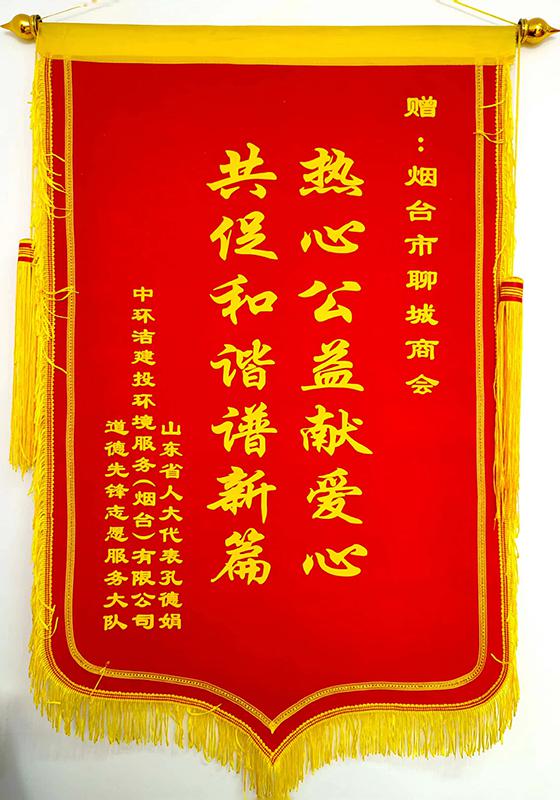 赠：烟台市聊城商会
热心公益献爱心
共促和谐谱新篇
山东省人大代表孔德娟
中环洁建投环境服务（烟台）有限公司
道德先锋志愿服务大队